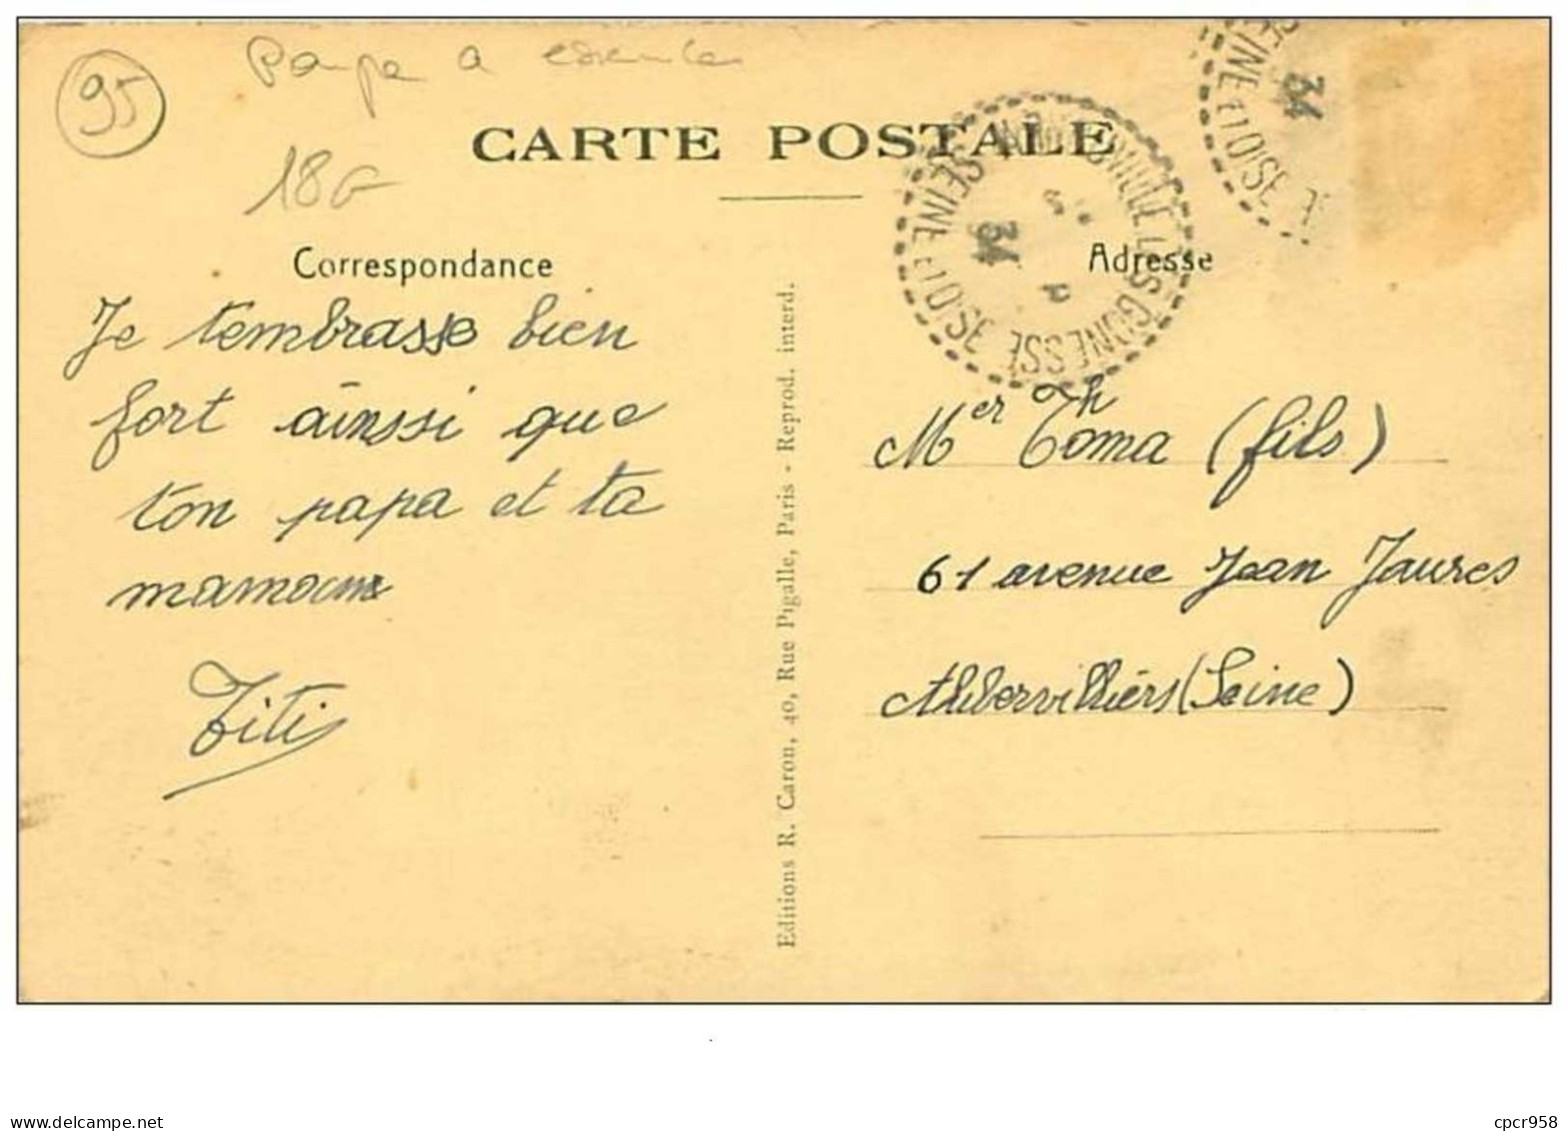 95
Pompe a essence
18G
CARTE POSTALE
SEINE ET OISE
34
ARNOUVILLE LES GONESSE
SEINE ET OISE
34
Correspondance
Adresse
Je tembrasse bien
fort ainssi que
ton papa et ta
maman
Titi
Editions R. Caron, 40, Rue Pigalle, Paris - Reprod. interd.
Mer Thoma (fils)
61 avenue Jean Jaures
Ahbervilliérs (Seine)
www.delcampe.net
cpcr958